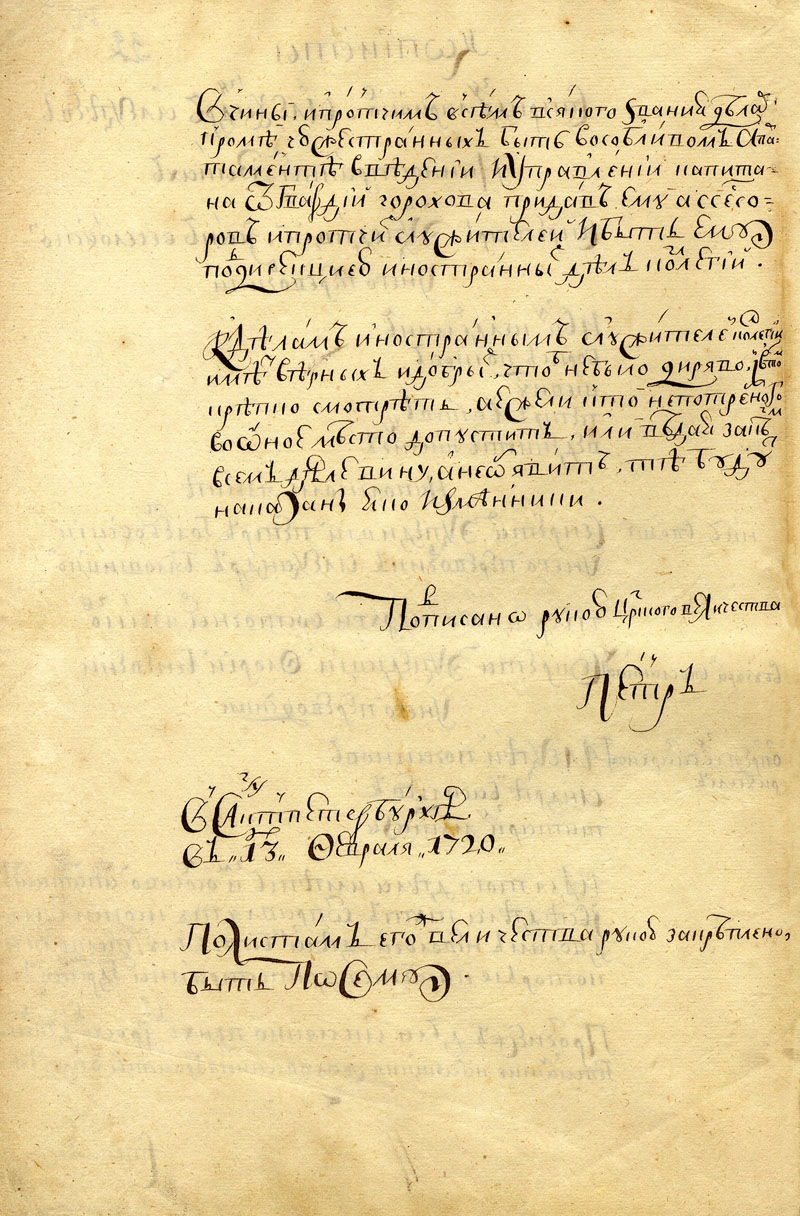 С чины, и протчимъ всѣмъ всякого звания дѣла
кромѣ чюжестранныхъ быть в особливомъ апа-
таментѣ в вѣдении и управлении капита-
на от гвардии горохова придавъ ему ассесо-
ровъ и протчи служителей и быть ему
под дирекциею иностранны дѣлъ колегии.
К дѣламъ иностраннымъ служителе колегии
имѣть вѣрныхъ и добры, чтоб не было диряво, и в то
крѣпко смотрѣть,
в оное мѣсто допустить, или вѣдая за кѣ
в семъ дѣле вину, а не объявитъ, тѣ будут
наказаны яко измѣнники.
Подписано рукою Црского величества
Петръ
В Санктпетербурхѣ
въ 13 Февраля 1720
По листамъ его величества рукою закрѣплено,
быть по сему